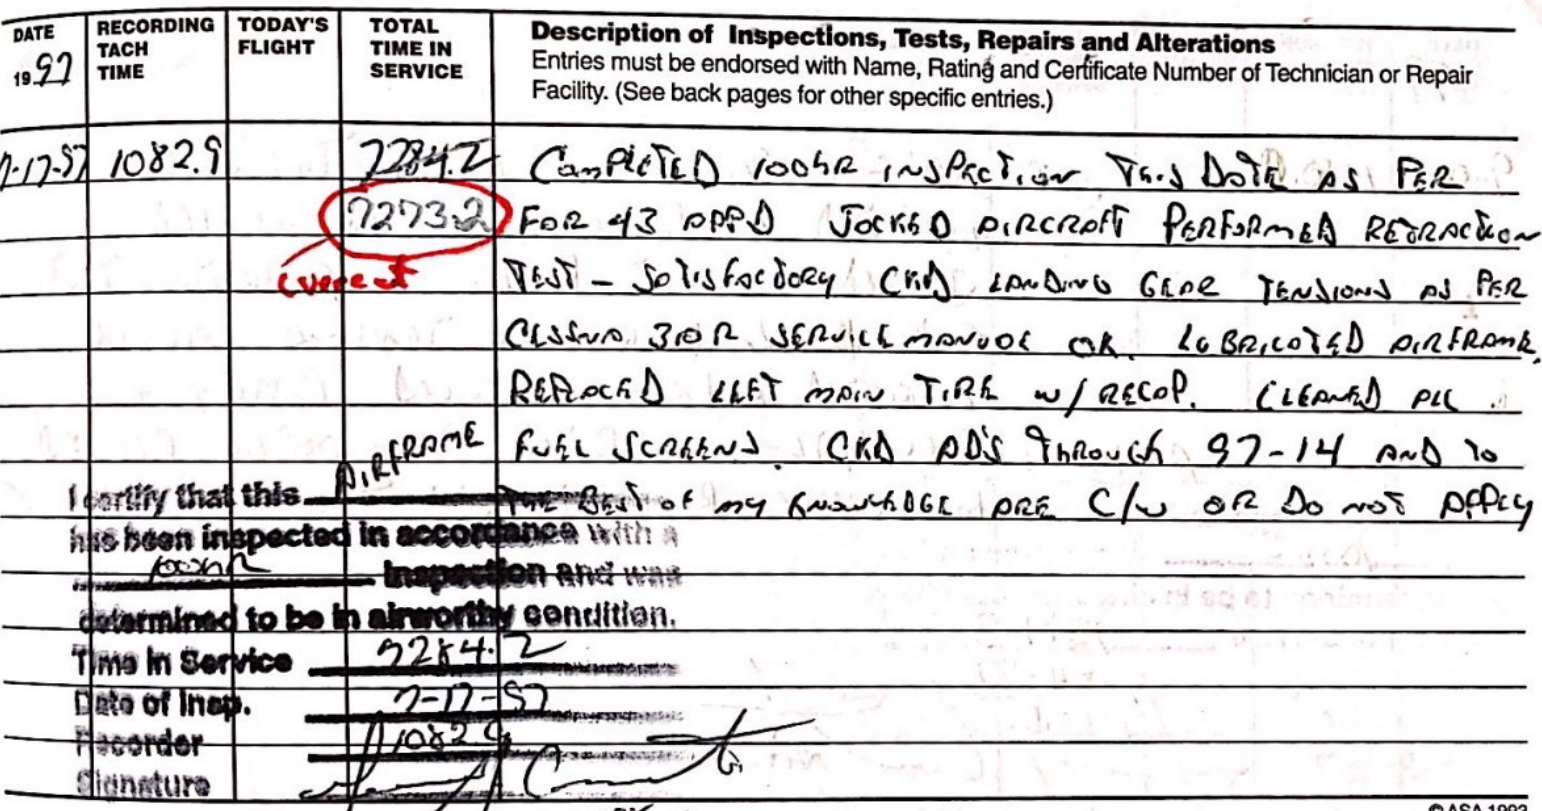 DATE
1997
RECORDING
TACH
TIME
TODAY'S
FLIGHT
TOTAL
TIME IN
SERVICE
Description of Inspections, Tests, Repairs and Alterations
Entries must be endorsed with Name, Rating and Certificate Number of Technician or Repair
Facility. (See back pages for other specific entries.)
7-17-97 1082.9 7284.2 COMPLETED 100HR INSPECTION THIS DATE AS PER
7273.2 FAR 43 APPD JACKED AIRCRAFT PERFORMED RETRACTION
TEST - SATISFACTORY CKD LANDING GEAR TENSIONS AS PER
CESSNA 310R SERVICE MANUAL OK. LUBRICATED AIRFRAME.
REPLACED LEFT MAIN TIRE W/ RECAP. CLEANED ALL
FUEL SCREENS. CKD AD'S THROUGH 97-14 AND TO
THE BEST OF MY KNOWLEDGE ARE C/W OR DO NOT APPLY
I certify that this AIRFRAME
has been inspected in accordance with a
100HR Inspection and was
determined to be in airworthy condition.
Time in Service 7284.2
Date of Insp. 7-17-97
Recorder 1082.9
Signature
© ASA 1993